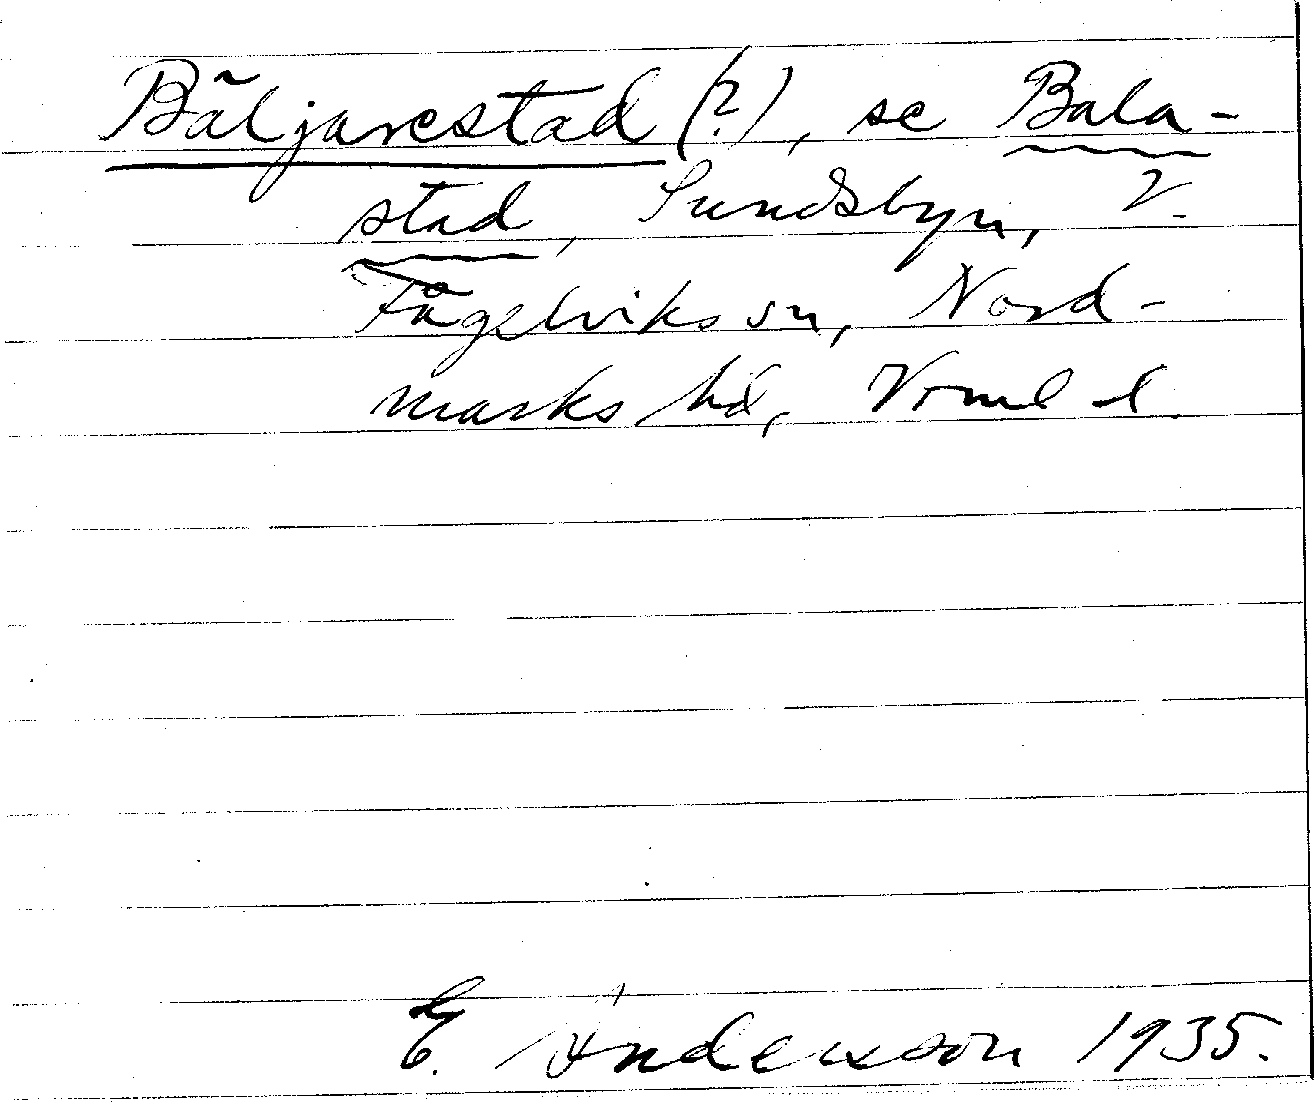 Bäljarestad (?), se Bala-
stad, Sundsbyn, V.
Fågelviks sn, Nord-
marks hd, Vrml. l.
E. Andersson 1935.